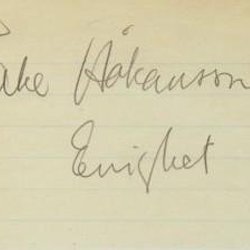 Åke Håkanson
Enighet